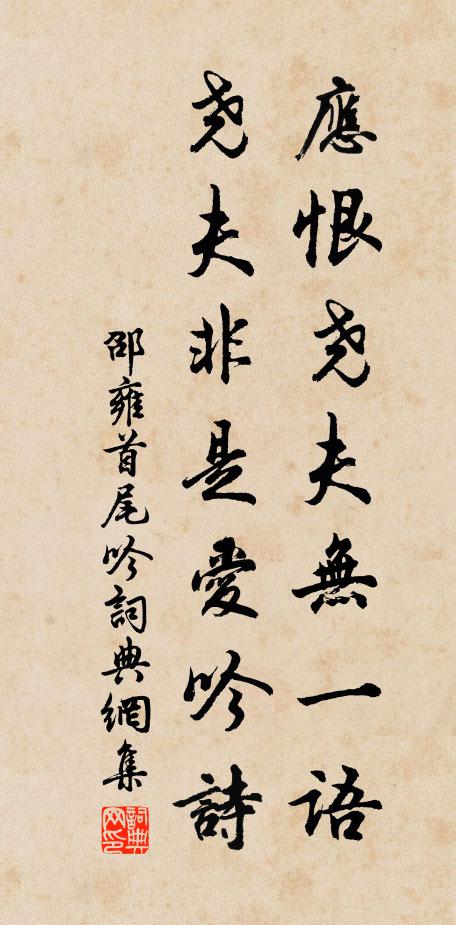 應恨尧夫無一语
尧夫非是愛吟詩
邵雍首尾吟詞典網集
詞典
网印